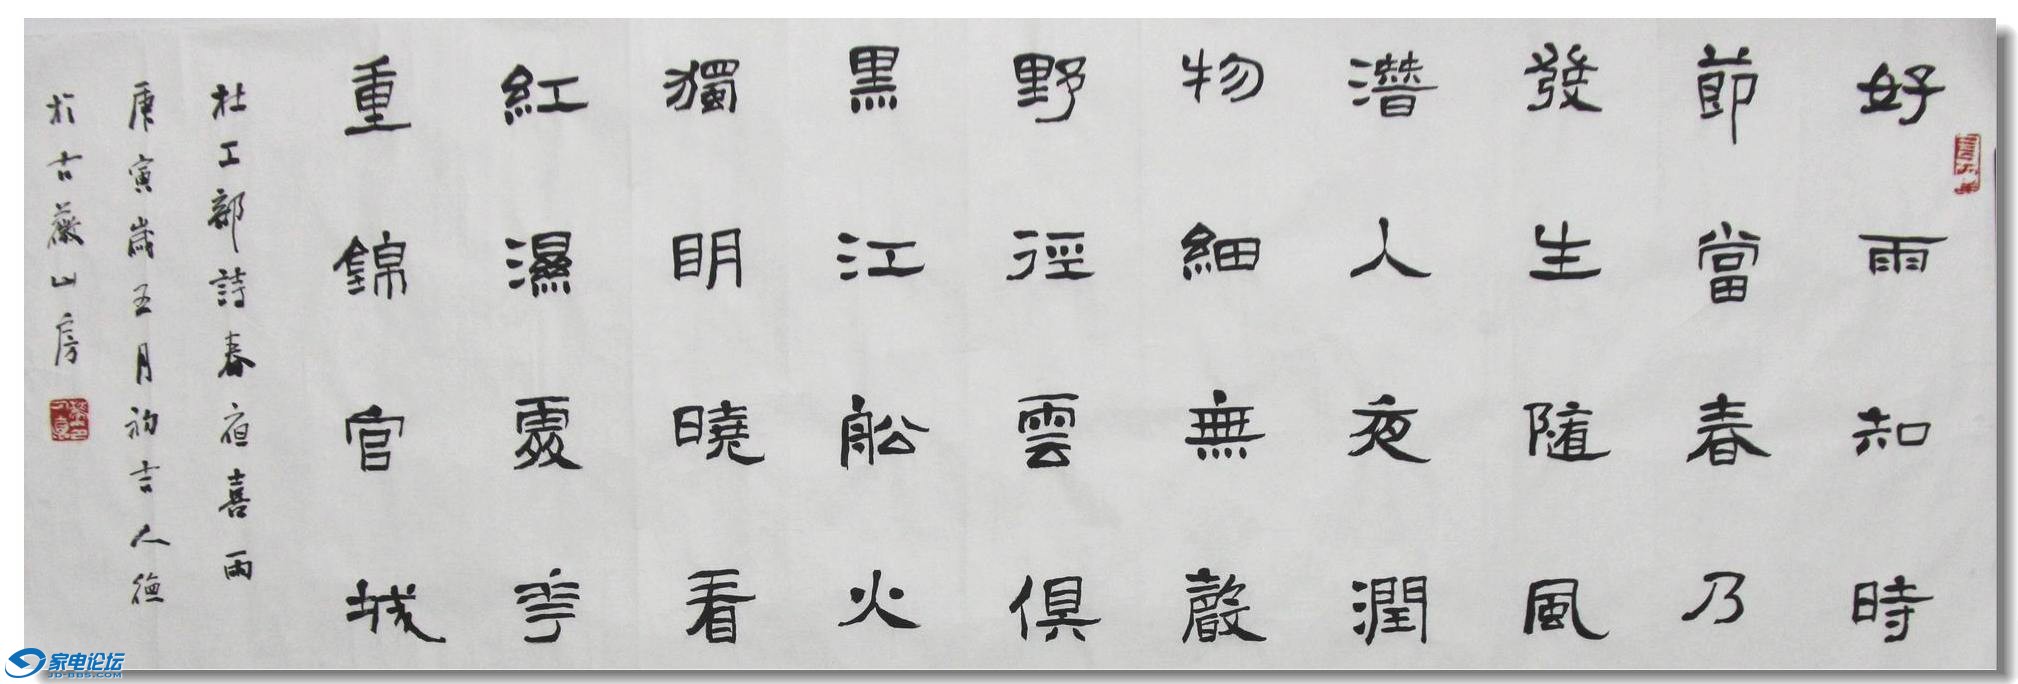 好雨知時
節當春乃
發生隨風
潛入夜潤
物細無聲
野徑雲俱
黑江船火
獨明曉看
紅濕處華
重錦官城
杜工部詩春夜喜雨
庚寅歲五月初吉人德
於古薇山房
家电论坛
JD-BBS.COM